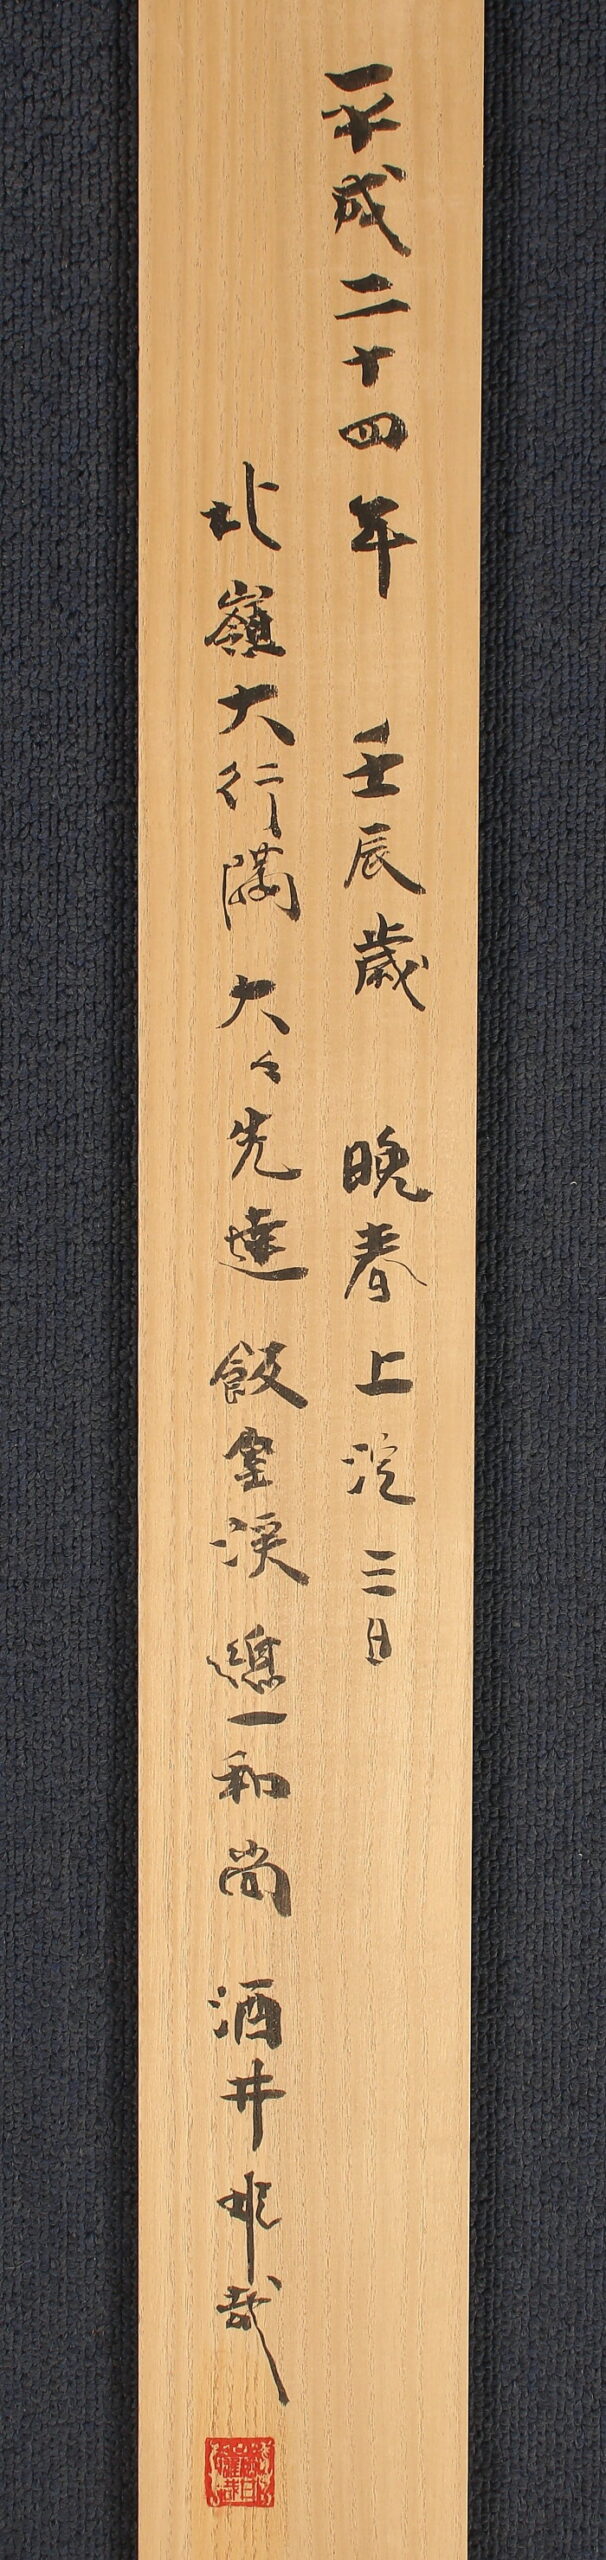 平成二十四年 壬辰歳 晩春上浣三日
北嶺大行満 大々先達 飯室渓 總一和尚 酒井雄哉